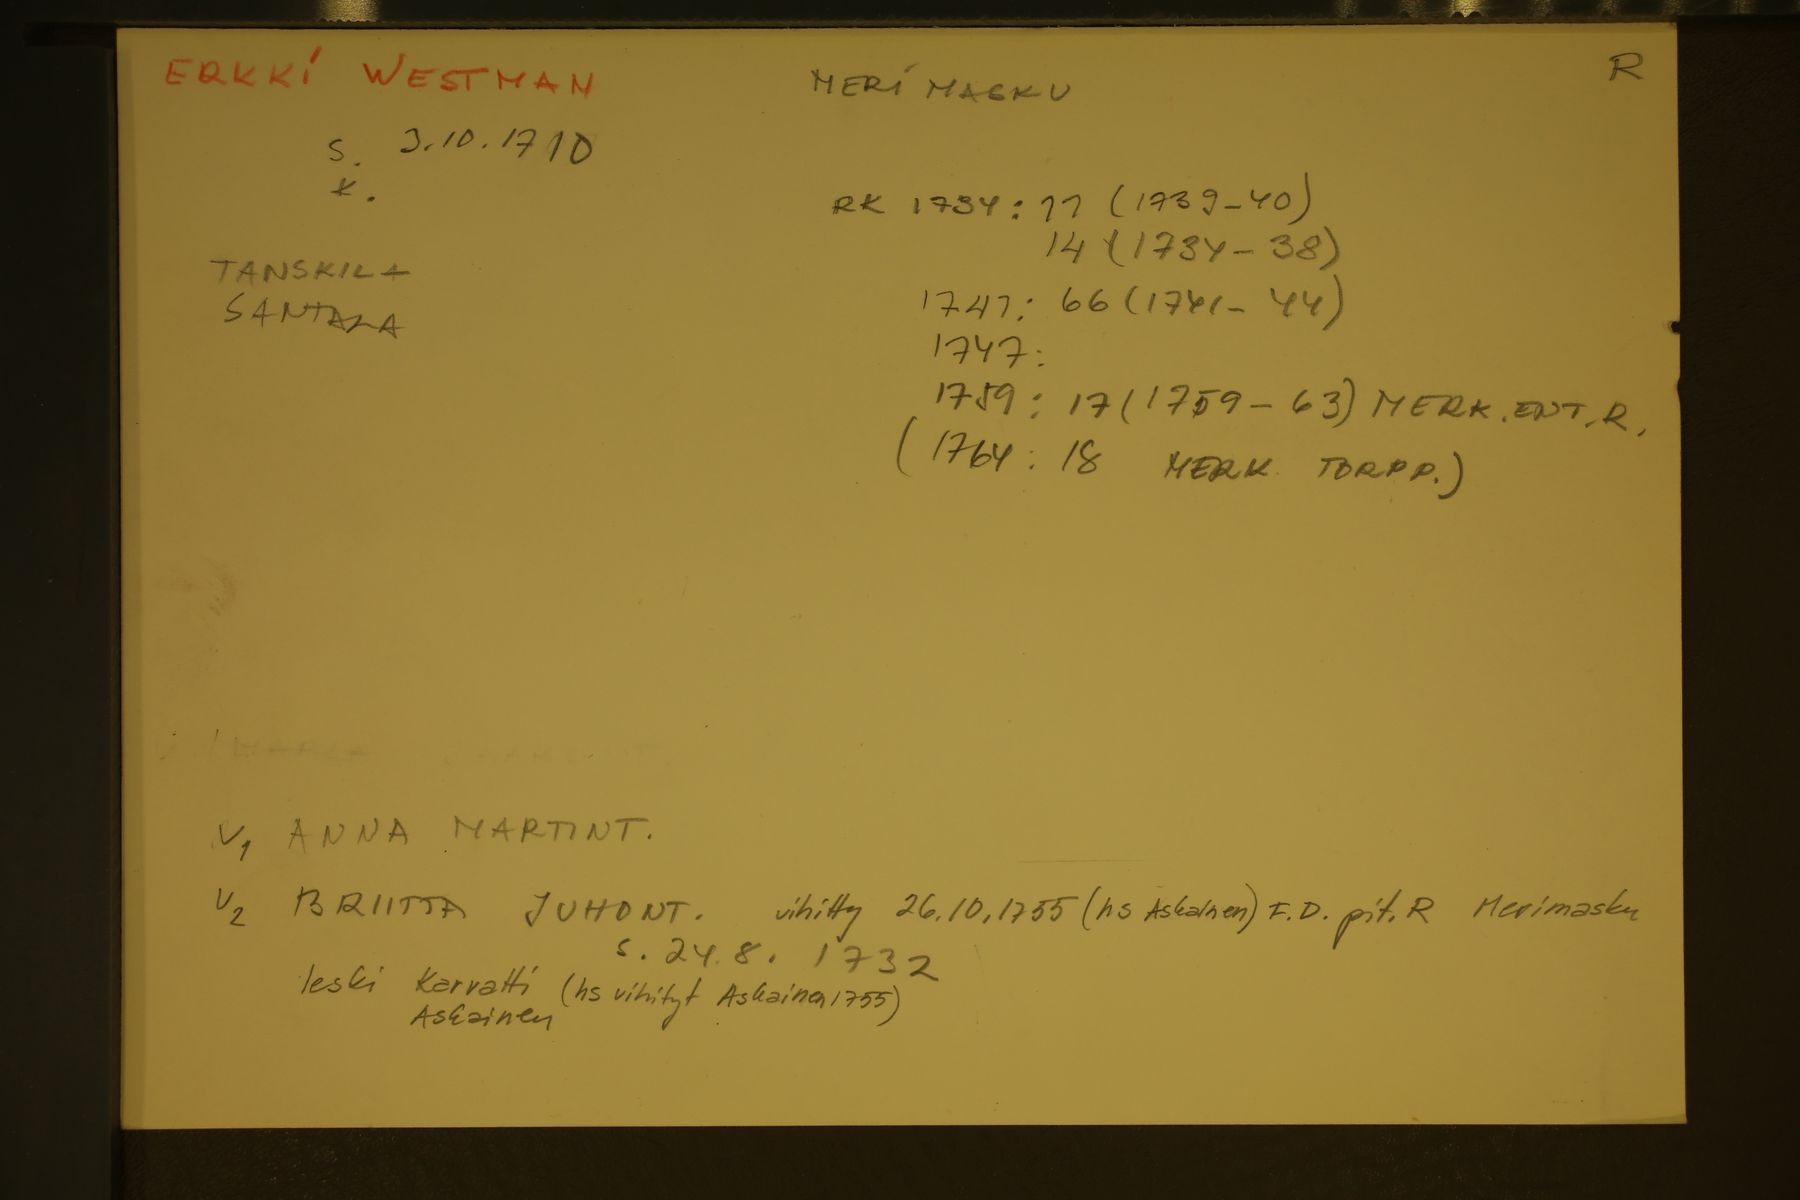 ERKKI WESTMAN
MERIMASKU
R
s. 3.10.1710
k.
TANSKILA
SANTALA
RK 1734: 11 (1739-40)
14 (1734-38)
1741: 66 (1741-44)
1747:
1759: 17 (1759-63) MERK. ENT. R.
(1764: 18 MERK TORPP.)
V1 ANNA MARTINT.
V2 BRIITTA JUHONT. vihitty 26.10.1755 (hs Askainen) E.D. pit. R Merimasku
s. 24.8. 1732
leski Karvatti (hs vihityt Askainen 1755)
Askainen